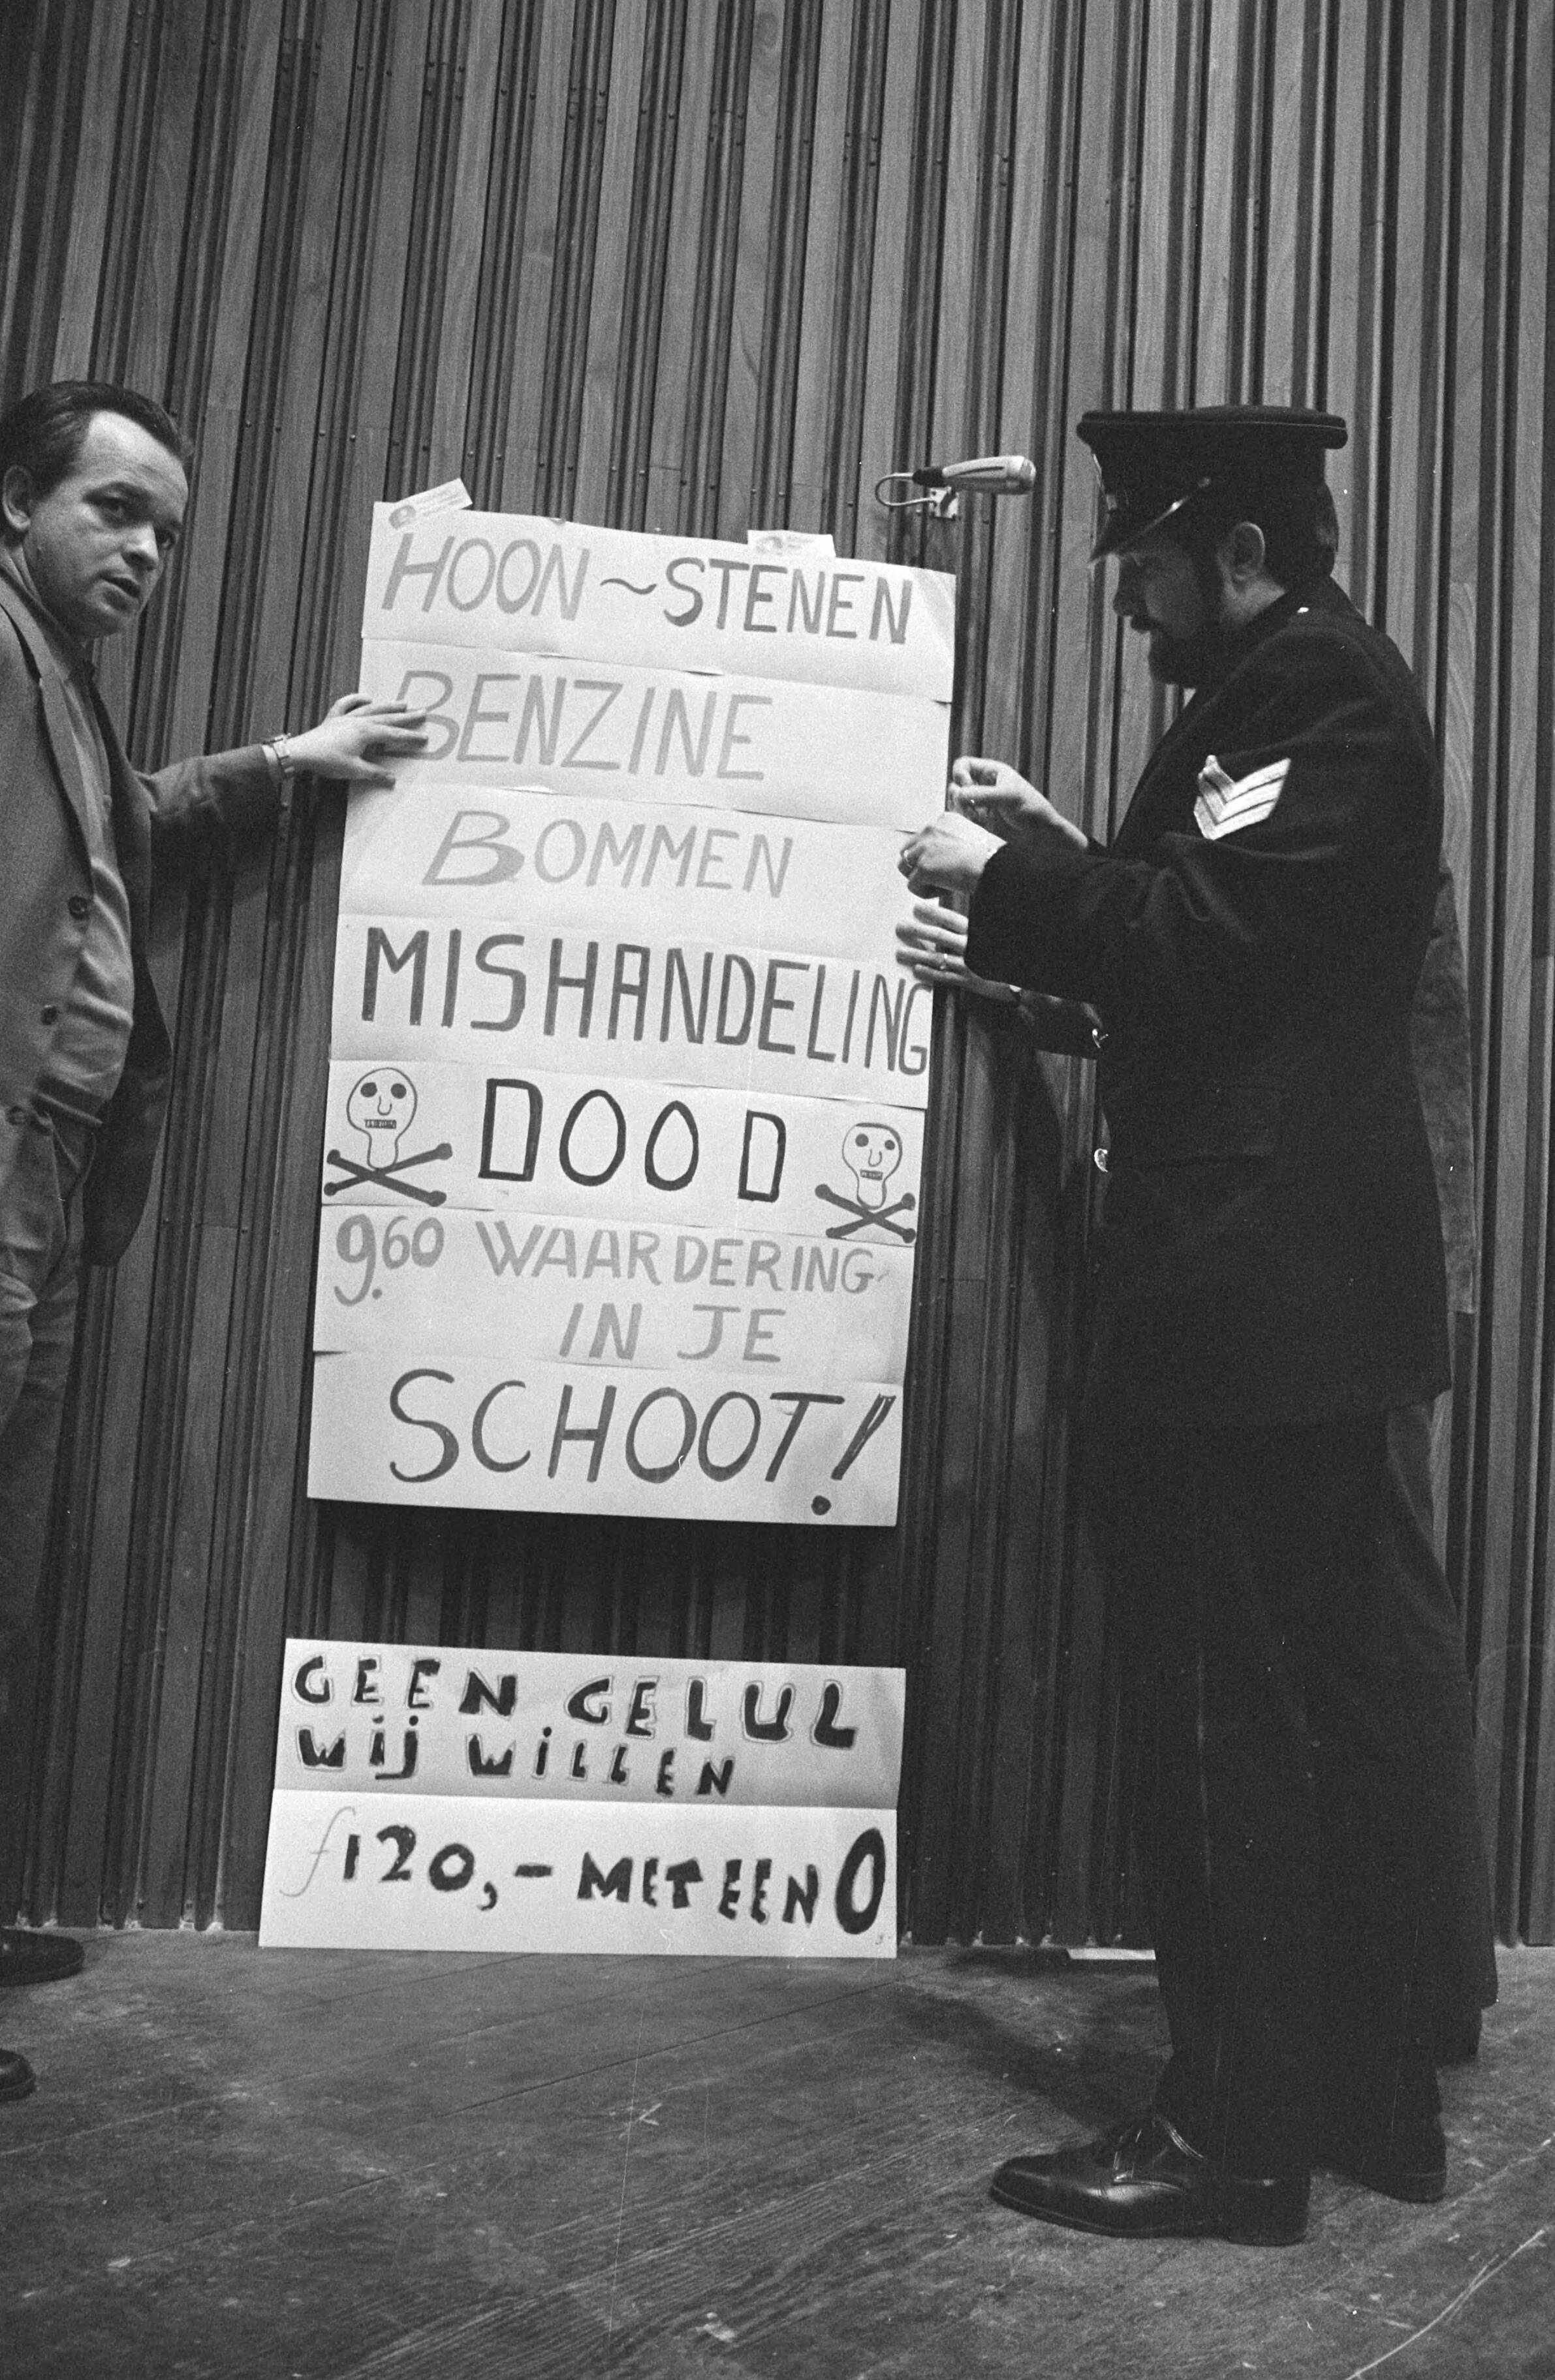 HOON~STENEN
BENZINE
BOMMEN
MISHANDELING
DOOD
9.60 WAARDERING
IN JE
SCHOOT!
GEEN GELUL
WIJ WILLEN
f120,- MET EEN O